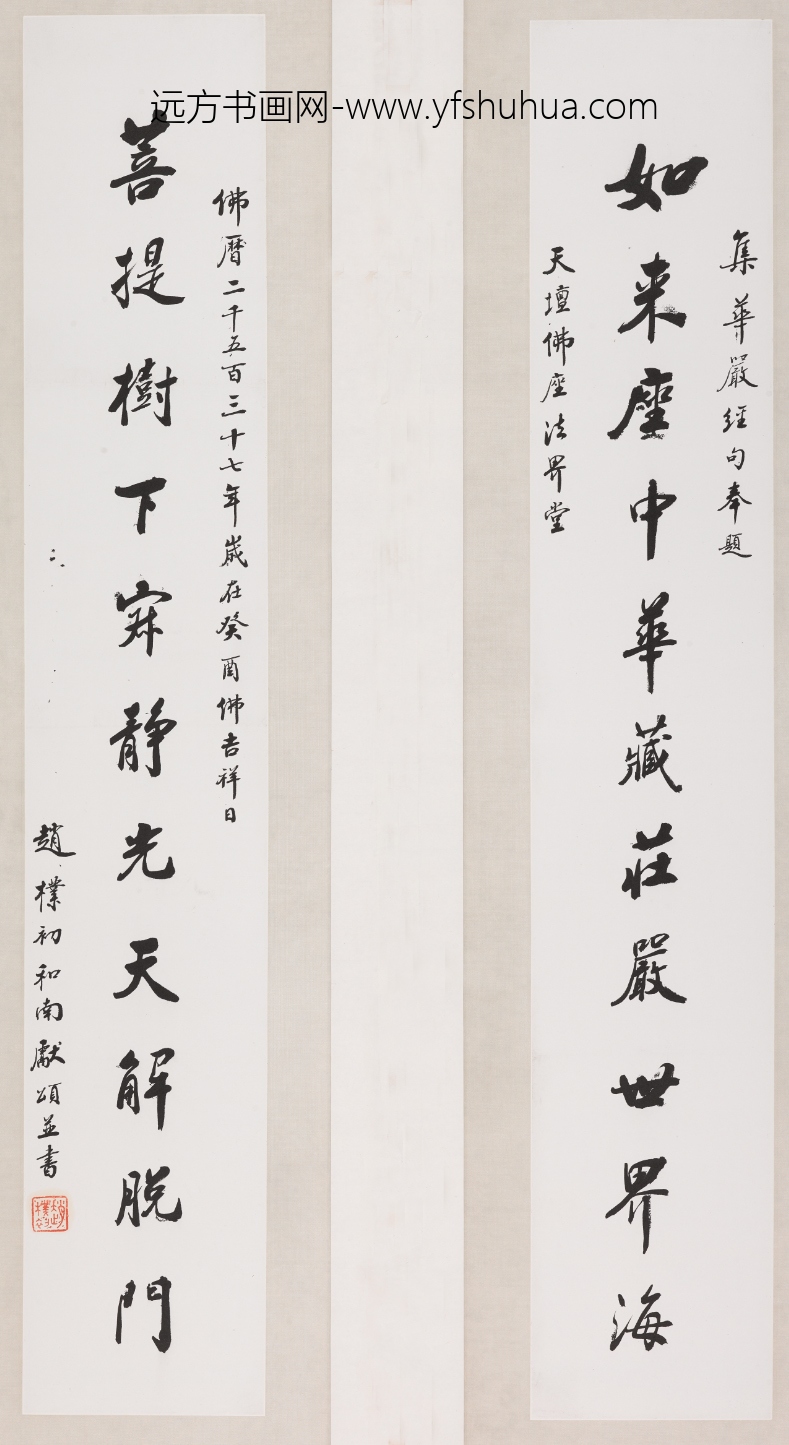 远方书画网-www.yfshuhua.com
集華嚴經句奉題
如来座中華藏莊嚴世界海
天壇佛座法界堂
佛曆二千五百三十七年歲在癸酉佛吉祥日
菩提樹下寂静光天解脱門
趙樸初和南獻頌並書
趙樸初